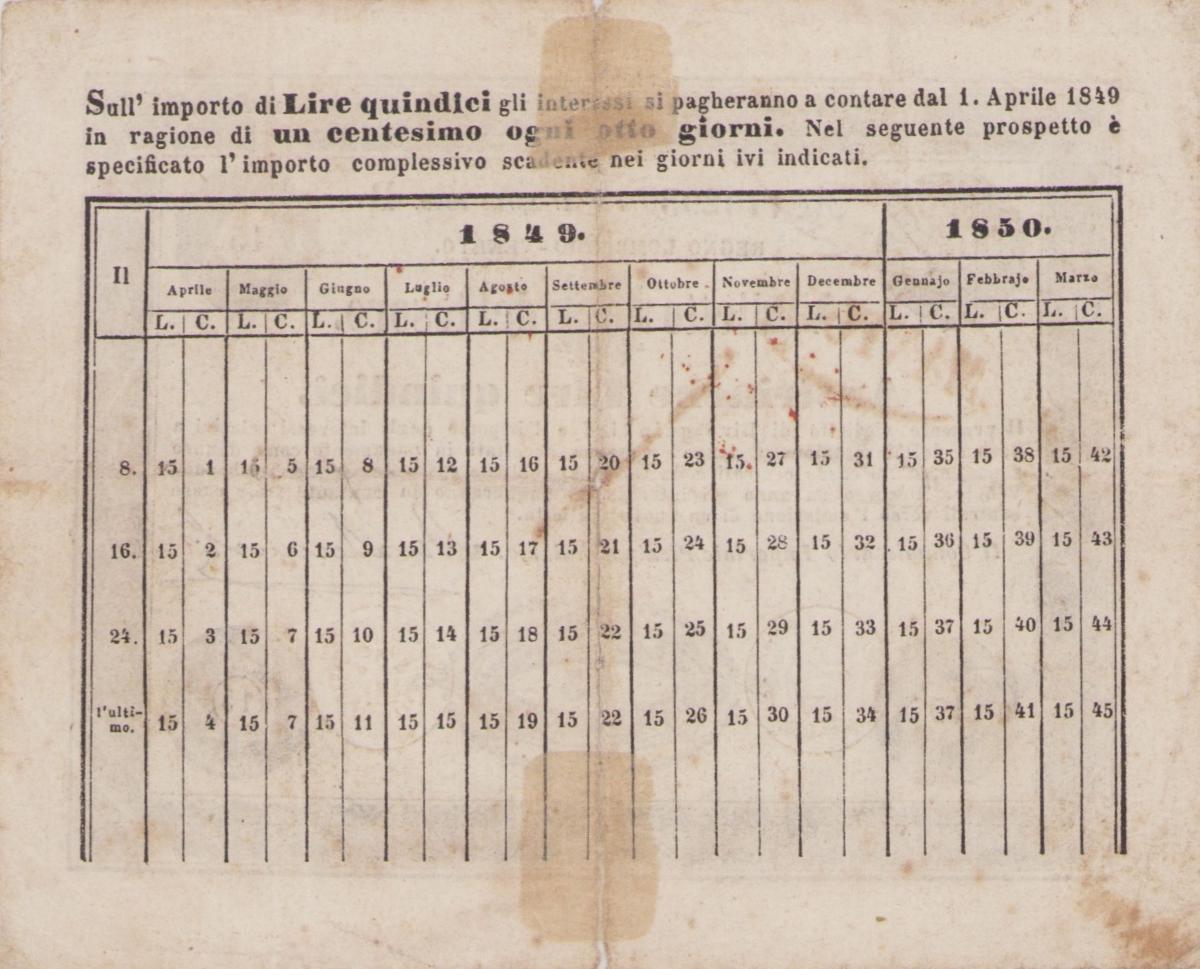 Sull' importo di Lire quindici gli interessi si pagheranno a contare dal 1. Aprile 1849
in ragione di un centesimo ogni otto giorni. Nel seguente prospetto è
specificato l' importo complessivo scadente nei giorni ivi indicati.
Il 1849. 1850.
Aprile Maggio Giugno Luglio Agosto Settembre Ottobre Novembre Decembre Gennajo Febbrajo Marzo
L. C. L. C. L. C. L. C. L. C. L. C. L. C. L. C. L. C. L. C. L. C. L. C.
8. 15 1 15 5 15 8 15 12 15 16 15 20 15 23 15. 27 15 31 15 35 15 38 15 42
16. 15 2 15 6 15 9 15 13 15 17 15 21 15 24 15 28 15 32 15 36 15 39 15 43
24. 15 3 15 7 15 10 15 14 15 18 15 22 15 25 15 29 15 33 15 37 15 40 15 44
l'ulti-
mo. 15 4 15 7 15 11 15 15 15 19 15 22 15 26 15 30 15 34 15 37 15 41 15 45